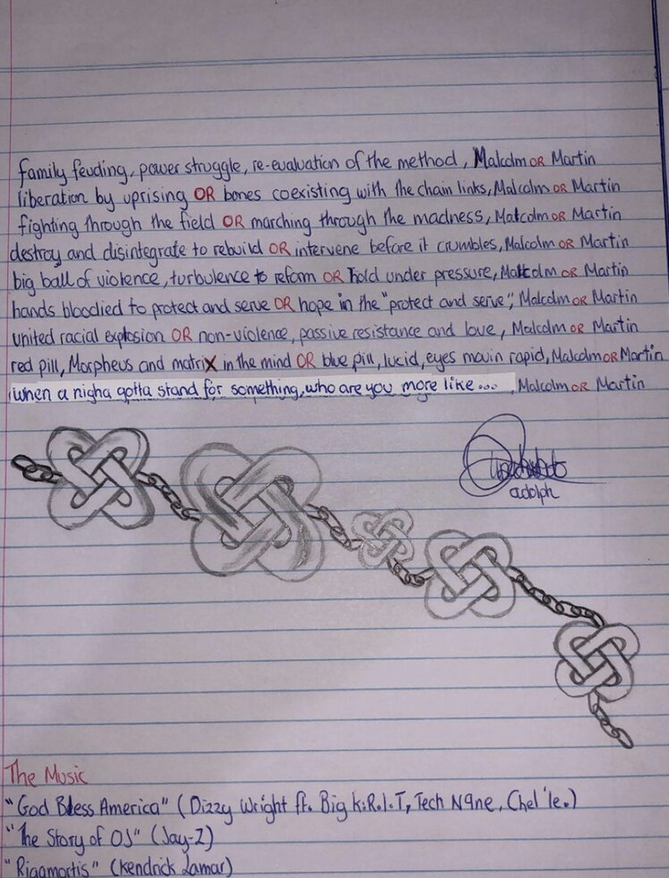 family feuding, power struggle, re-evaluation of the method, Malcolm OR Martin
liberation by uprising OR bones coexisting with the chain links, Malcolm OR Martin
fighting through the field OR marching through the madness, Malcolm OR Martin
destroy and disintegrate to rebuild OR intervene before it crumbles, Malcolm OR Martin
big ball of violence, turbulence to reform OR hold under pressure, Malcolm or Martin
hands bloodied to protect and serve OR hope in the "protect and serve", Malcolm or Martin
united racial explosion OR non-violence, passive resistance and love, Malcolm or Martin
red pill, Morpheus and matrix in the mind OR blue pill, lucid, eyes movin rapid, Malcolm OR Martin
when a nigha gotta stand for something, who are you more like... , Malcolm OR Martin
adolph
The Music
"God Bless America" (Dizzy Wright ft. Big K.R.I.T, Tech N9ne, Chel'le.)
"The Story of OJ" (Jay-Z)
"Rigamortis" (Kendrick Lamar)